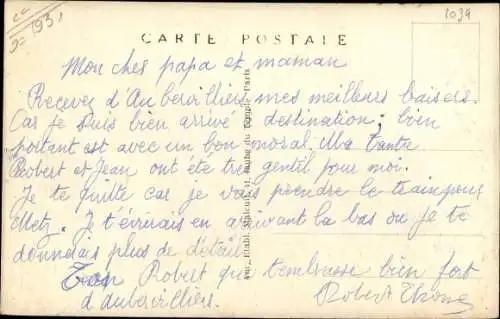 1931
1039
CARTE POSTALE
Mon cher papa et maman
Recevez d'Aubervilliers mes meilleurs baisers.
Car je suis bien arrivé a destination; bien
portant est avec un bon moral. Ma tante
Robert et Jean ont été très gentil pour moi.
Je te quitte car je vais prendre le train pour
Metz. Je t'écrirais en arrivant la bas ou je te
donnerais plus de détail
Ton Robert qui tembrasse bien fort
d'aubervilliers. Robert